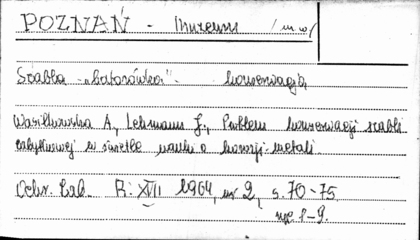 POZNAŃ - Muzeum /mw/
Szabla - „batorówka" - konserwacja
Wasilkowska A., Lehmann J., Problem konserwacji szabli
zabytkowej w świetle nauki o korozji metali
Ochr. Zab. R: XVII 1964, nr 2, s. 70-75
ryc. 1-9.